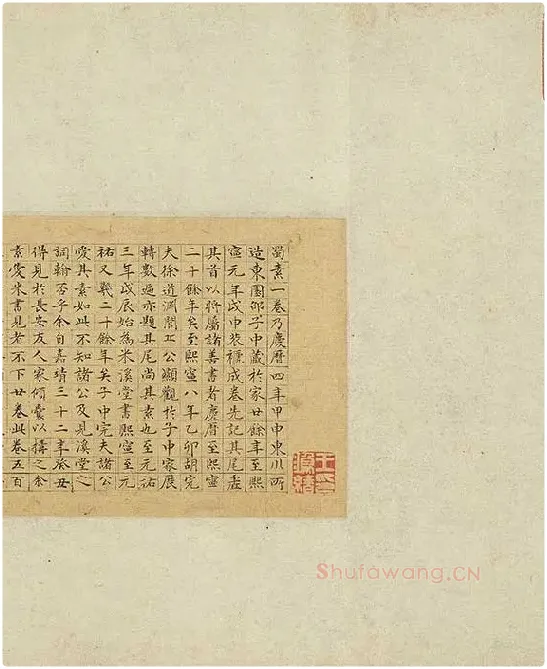 蜀素一卷乃慶曆四年甲申東川所
造東園邵子中藏於家廿餘年至熙
寧元年戊申裝褫成卷先記其尾虛
其首以將屬諸善書者慶曆至熙寧
二十餘年矣至熙寧八年乙卯胡完
夫徐道淵閭丘公顯觀於子中家展
轉數過亦題其尾尚其素也至元祐
三年戊辰始為米溪堂書熙寧至元
祐又幾二十餘年矣子中完夫諸公
愛其素如此不知諸公及見溪堂之
詞翰否乎余自嘉靖三十二年癸丑
得見於長安友人家傾囊以購之余
素愛米書見者不下廿卷此卷五百
Shufawang.CN